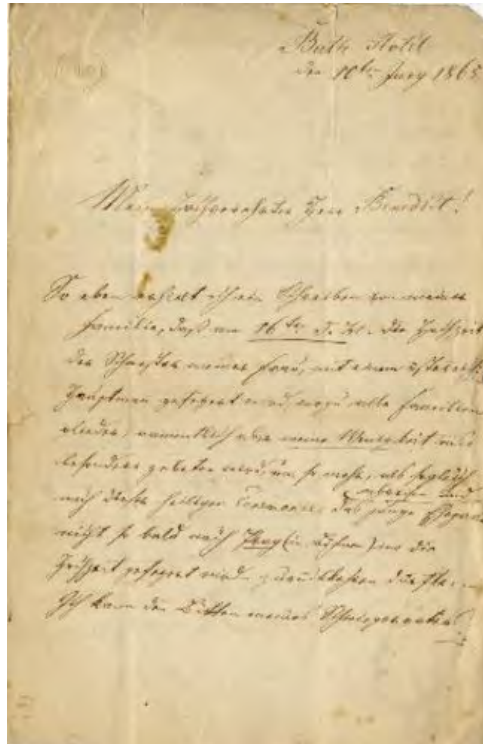 Bath Hotel
den 10ten Juny 1865
Mein hochverehrter Herr Benedict!
So eben erhielt ich ein Schreiben von meiner
Familie, daß am 16ten d. die Hochzeit
der Schwester meiner Frau, mit einem
Hauptman gefeyert wird, wozu alle Familien
glieder, namentlich aber meine
besonders gebeten wird, um so mehr, als sogleich
nach dieser heiligen Ceremonie, das junge Ehepaar
abreisen und
nicht so bald nach Prag (in Böhmen) wo die
Hochzeit gefeyert wird, zurückkehren dürfte.
Ich kann den Bitten meines Schwiegervaters